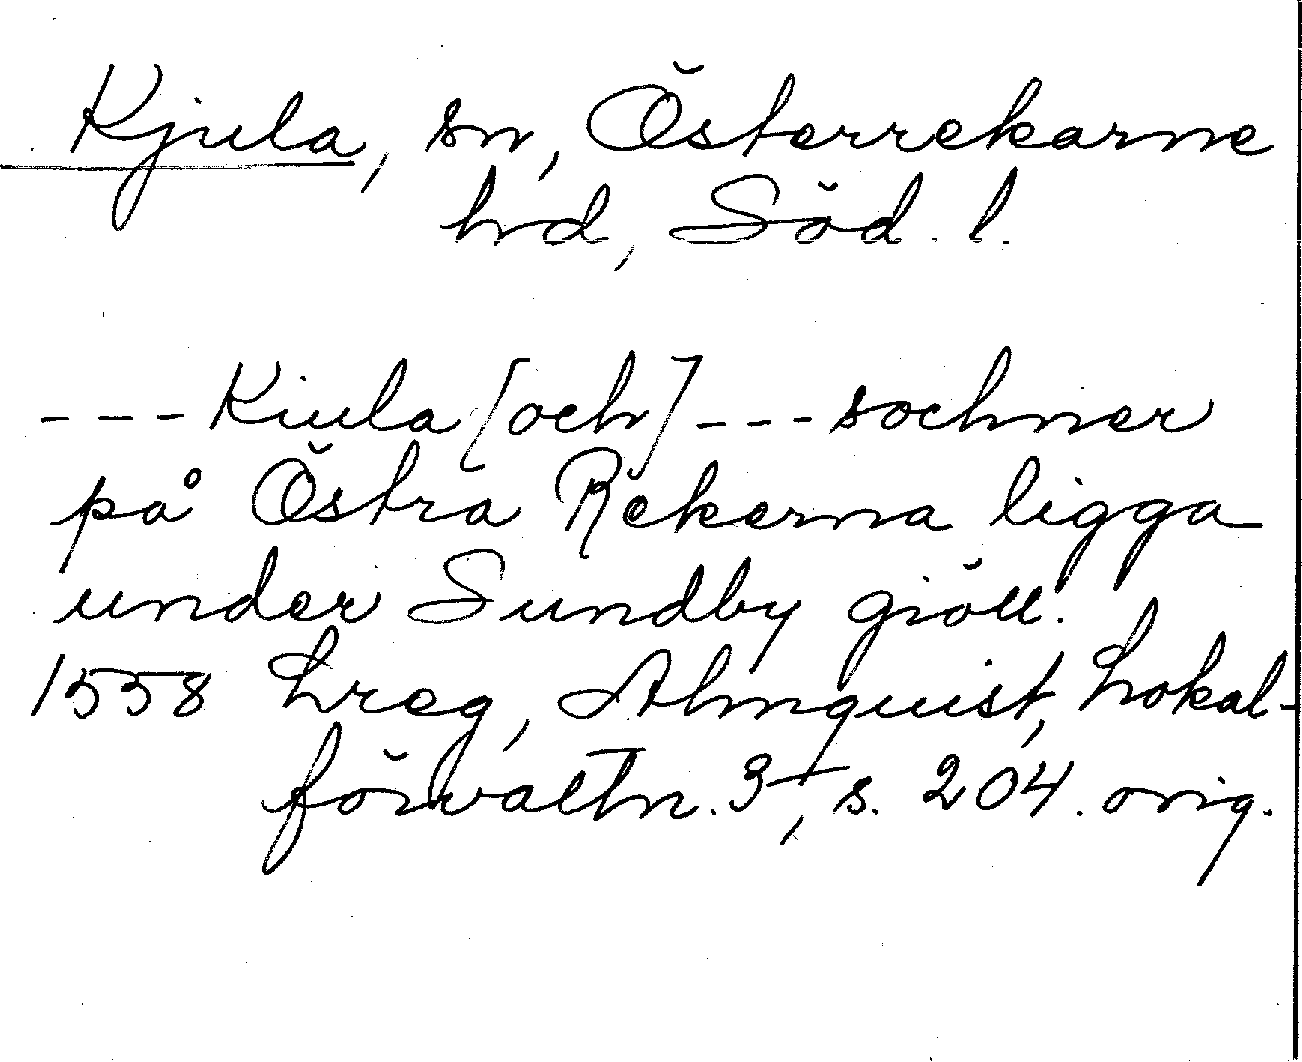 Kjula, sn, Österrekarne
hd, Söd. l.
--- Kiula [och] --- sochner
på Östra Rekerna ligga
under Sundby giöll.
1558 Lreg, Almquist, Lokal-
förvaltn. 3, s. 204. orig.